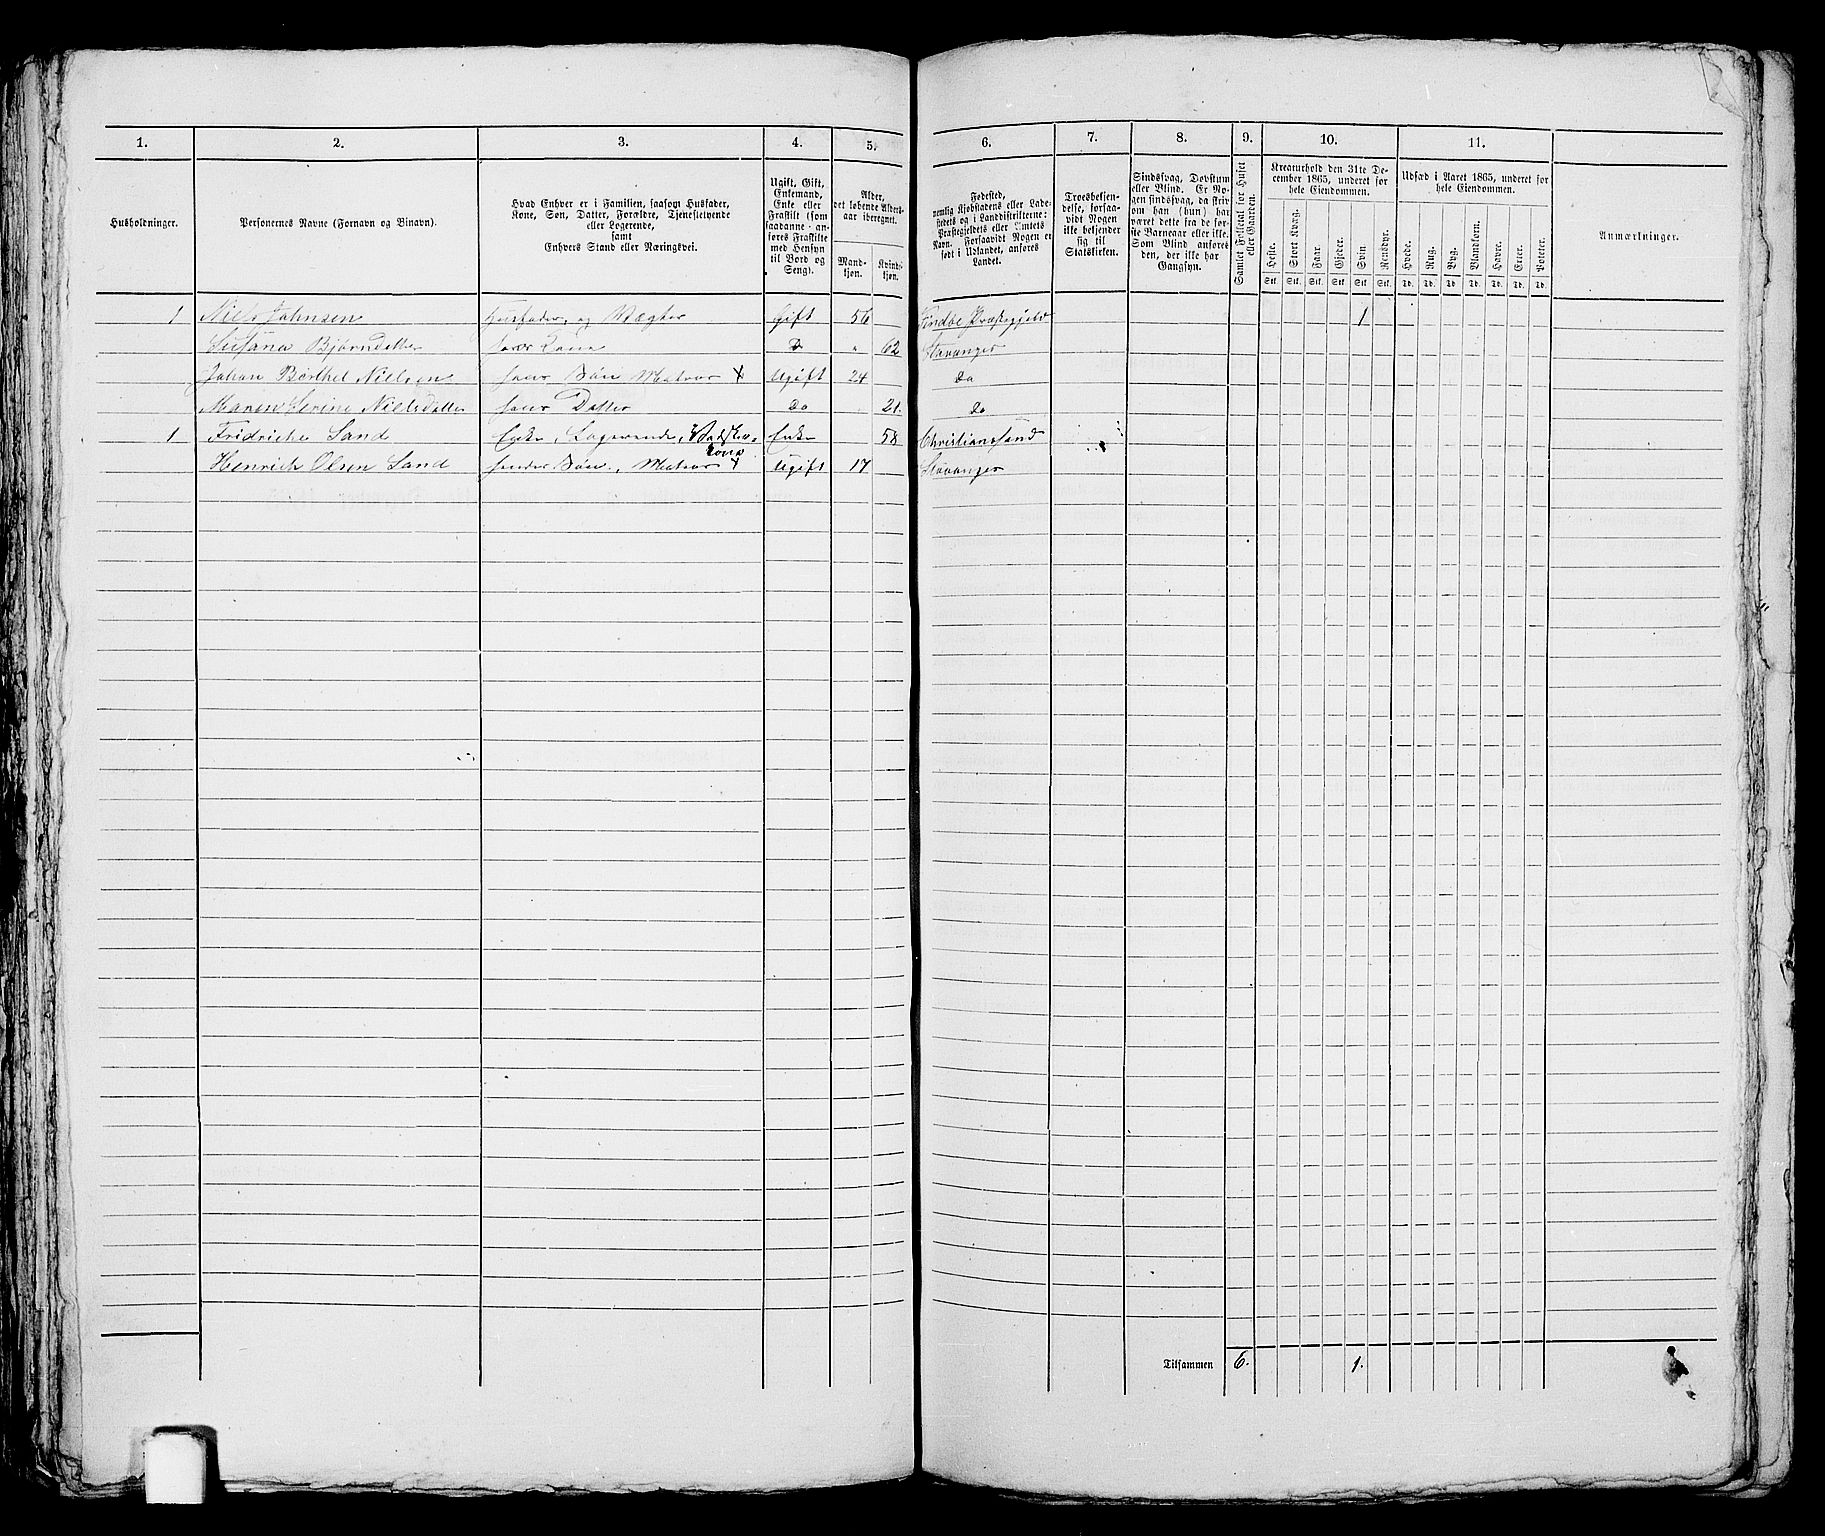 1. 2. 3. 4. 5. 6. 7. 8. 9. 10. 11.
Husholdninger.
Personernes Navne (Fornavn og Binavn).
Hvad Enhver er i Familien, saasom Husfader,
Kone, Søn, Datter, Forældre, Tjenestetyende
eller Logerende,
samt
Enhvers Stand eller Næringsvei.
Ugift, Gift,
Enkemand,
Enke eller
Fraskilt (som
saadanne anføres
Fraskilte
med Hensyn
til Bord og
Seng).
Alder,
det løbende Alders-
aar iberegnet.
Mand-
kjøn.
Kvind-
kjøn.
Fødested,
nemlig Kjøbstadens eller Lade-
stedets og i Landdistrikterne:
Præstegjeldets eller Amtets
Navn. Forsaavidt Nogen er
født i Udlandet, anføres
Landet.
Troesbekjen-
delse, forsaa-
vidt Nogen
ikke bekjender
sig til
Statskirken.
Sindssvag, Døvstum
eller Blind. Er No-
gen sindssvag, da hvor-
om han (hun) har
været dette fra de før-
ste Barneaar eller ikke.
Som Blind anføres
den, der ikke har
Gangsyn.
Samlet Folketal for Huset
eller Gaarden.
Kreaturhold den 31te De-
cember 1865, underet for
hele Eiendommen.
Heste. Stort Kvæg. Faar. Gjeder. Svin. Rensdyr.
Stk. Stk. Stk. Stk. Stk. Stk.
Udsæd i Aaret 1865, underet for
hele Eiendommen.
Hvede. Rug. Byg. Blandkorn. Havre. Erter. Poteter.
Td. Td. Td. Td. Td. Td. Td.
Anmærkninger.
1 Niels Johnsen Husfader, og Vægter Gift 56 Findøe Præstegjeld 1
Susana Bjørndatter hans Kone Do " 62 Stavanger
Johan Berthel Nielsen hans Søn Matros X Ugift 24 Do
Maren Serine Nielsdatter hans Datter Do 21. Do
1 Fridriche Sand Enke, Logerende, Vadskerkone Enke 58 Christianssand
Henrich Olsen Sand hendes Søn, Matros X Ugift 17 Stavanger
Tilsammen 6. 1.